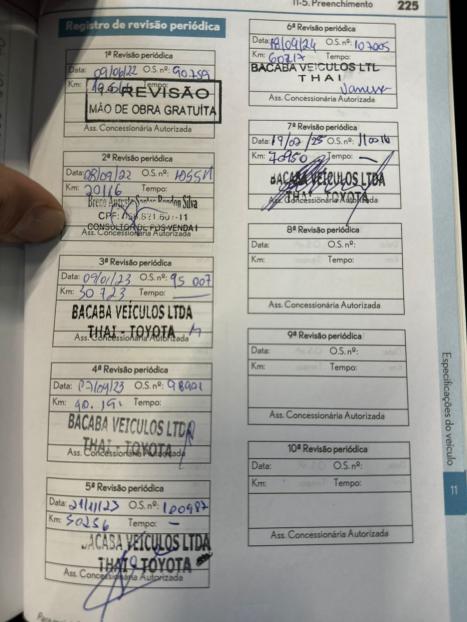 11-5. Preenchimento 225
Registro de revisão periódica
1ª Revisão periódica
Data: 09/06/22 O.S. nº: 90759
Km: Tempo:
REVISÃO
MÃO DE OBRA GRATUÍTA
Ass. Concessionária Autorizada
2ª Revisão periódica
Data: 08/09/22 O.S. nº:
Km: 20116 Tempo:
Silva
CONSULTOR DE PÓS-VENDA
Ass. Concessionária Autorizada
3ª Revisão periódica
Data: 09/01/23 O.S. nº: 95 007
Km: 30 723 Tempo:
BACABA VEÍCULOS LTDA
THAI - TOYOTA
Ass. Concessionária Autorizada
4ª Revisão periódica
Data: O.S. nº: 98901
Km: 40.191 Tempo:
BACABA VEICULOS LTDA
THAI - TOYOTA
Ass. Concessionária Autorizada
5ª Revisão periódica
Data: 21/11/23 O.S. nº: 100987
Km: 50256 Tempo: -
BACABA VEÍCULOS LTDA
THAI TOYOTA
Ass. Concessionária Autorizada
6ª Revisão periódica
Data: 18/09/24 O.S. nº: 107005
Km: 60217 Tempo:
BACABA VEICULOS LTL
THAI
Vanessa
Ass. Concessionária Autorizada
7ª Revisão periódica
Data: 19/02/25 O.S. nº: 110016
Km: 70950 Tempo: -
BACABA VEÍCULOS LTDA
THAI TOYOTA
Ass. Concessionária Autorizada
8ª Revisão periódica
Data: O.S. nº:
Km: Tempo:
Ass. Concessionária Autorizada
9ª Revisão periódica
Data: O.S. nº:
Km: Tempo:
Ass. Concessionária Autorizada
10ª Revisão periódica
Data: O.S. nº:
Km: Tempo:
Ass. Concessionária Autorizada
Especificações do veículo
11